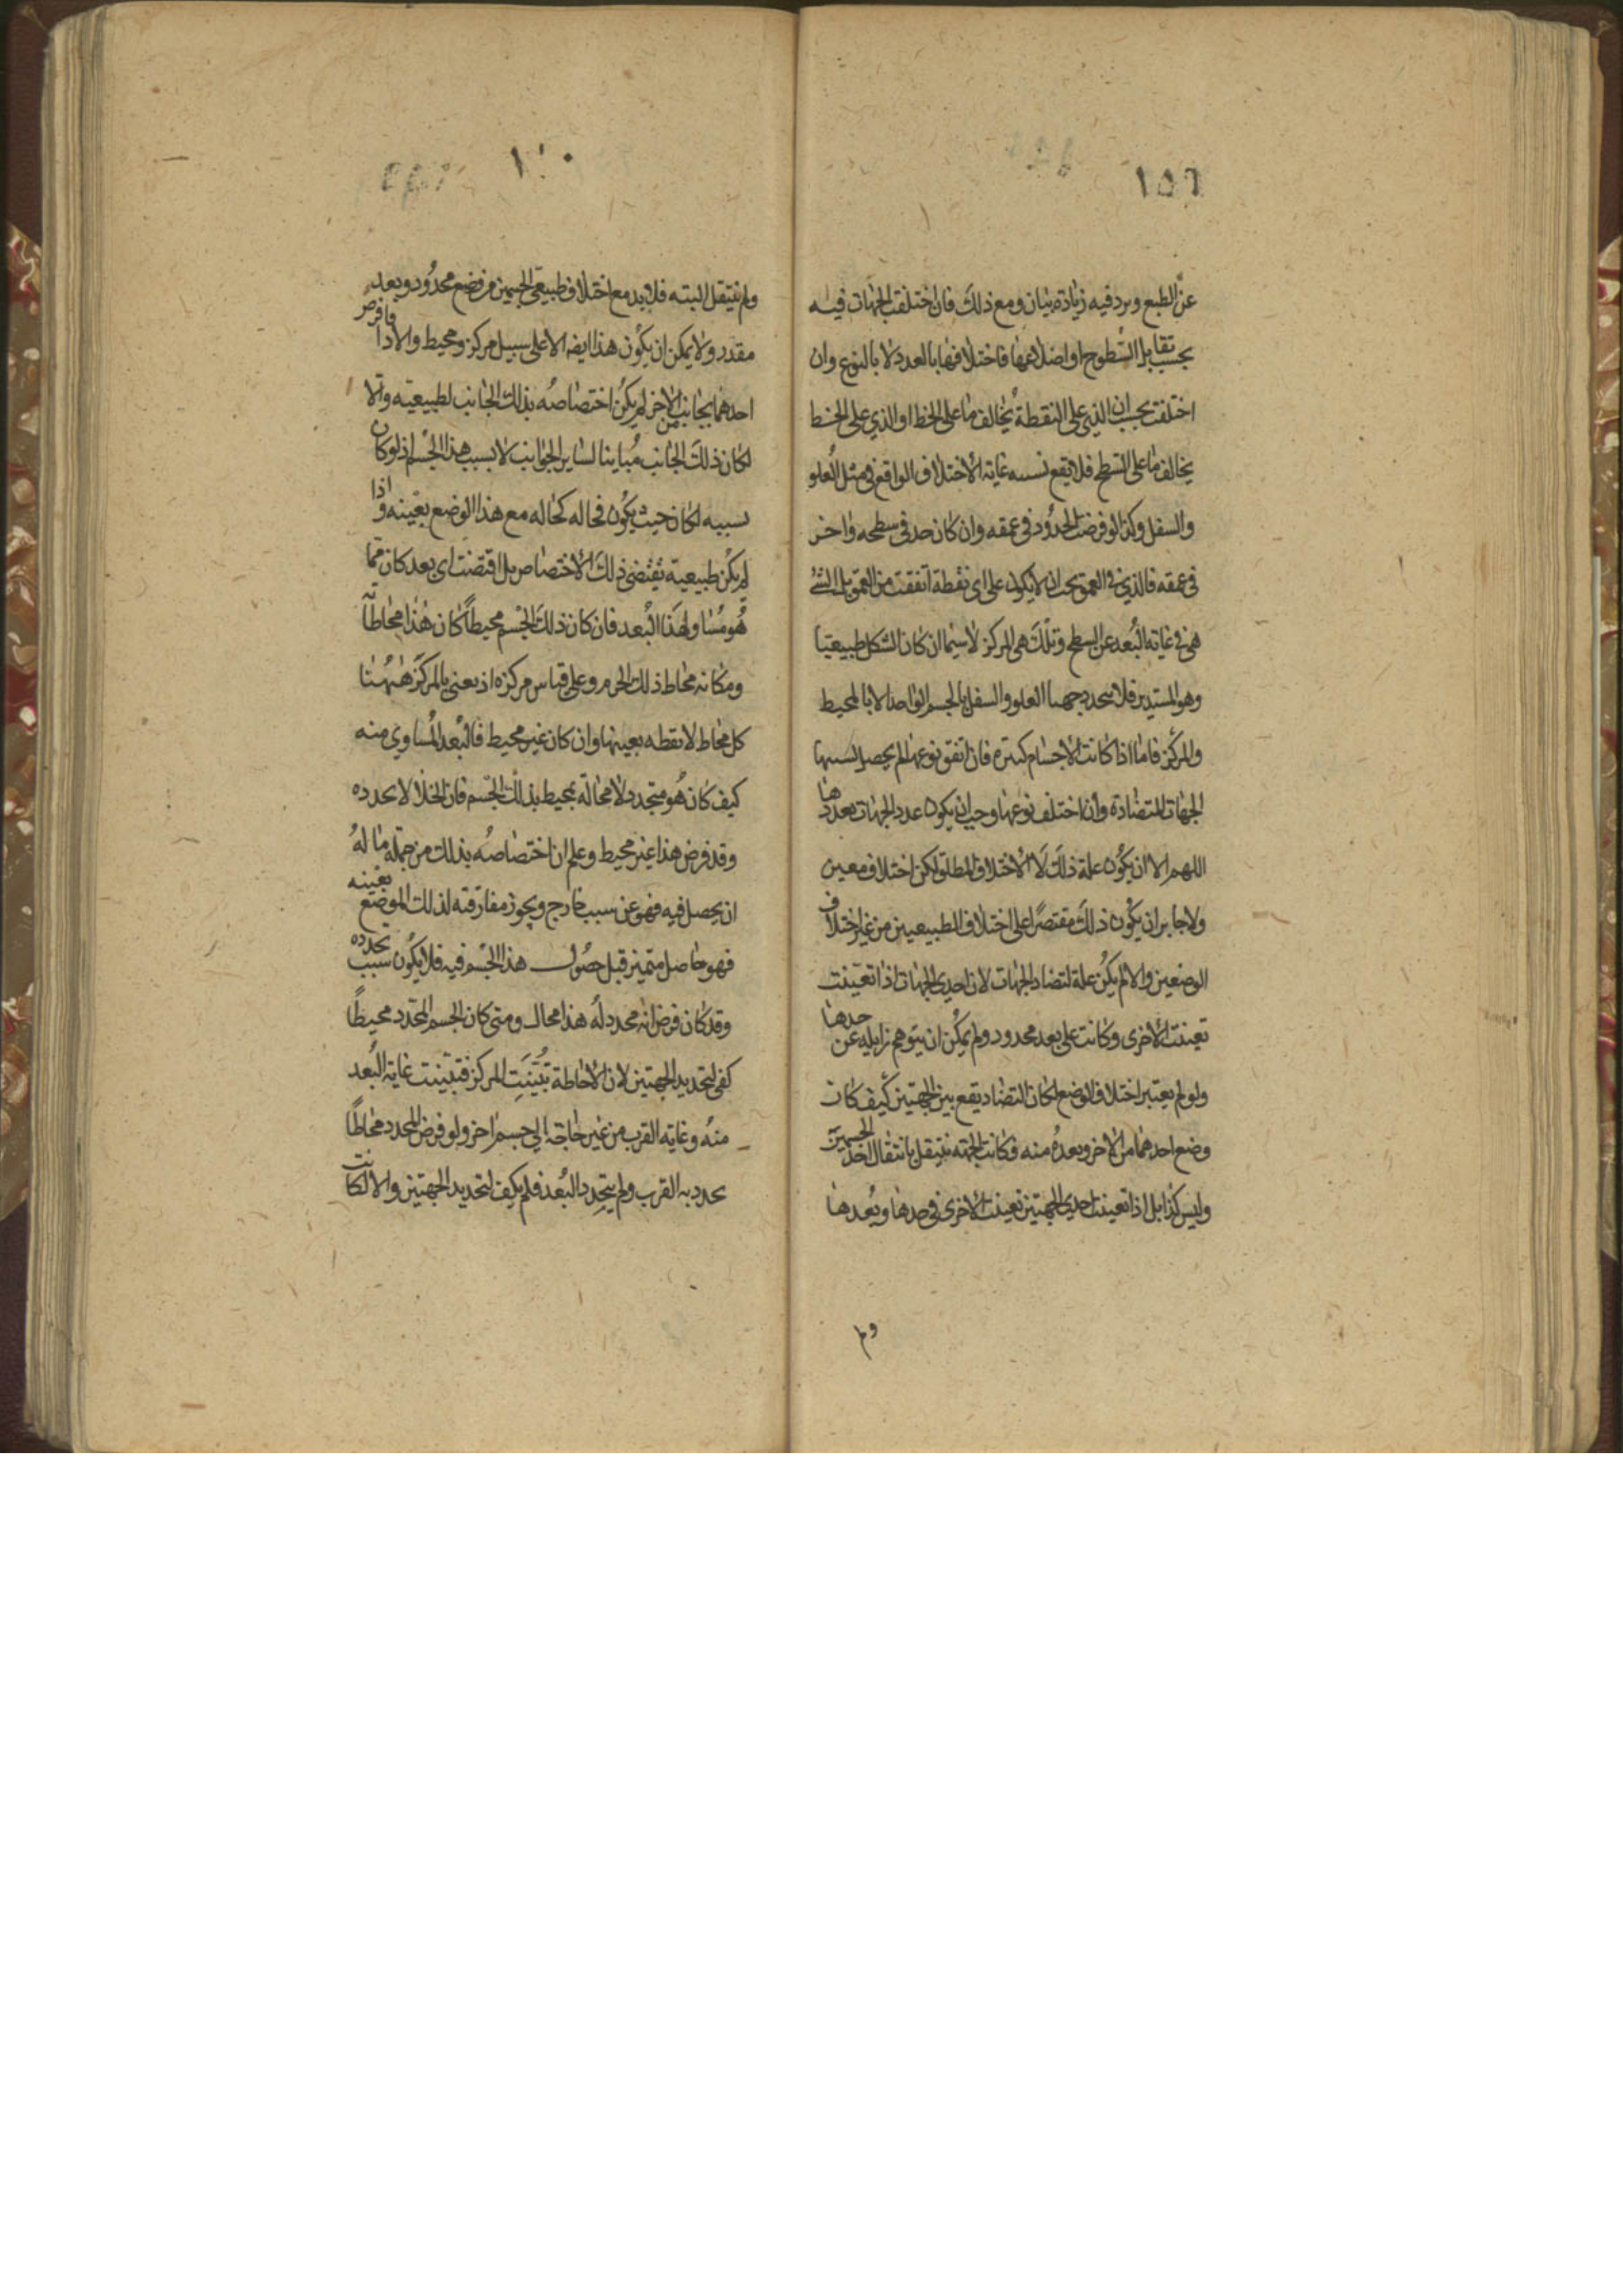 ١٥٦
عن الطبع ويرد فيه زيادة بيان ومع ذلك فان اختلفت الجهات فيه
بحسب تقابل السطوح او اضلاعها فاختلافها بالعدد لا بالنوع وان
اختلفت بحسب ان الذي على النقطة يخالف ما على الخط او الذي على الخط
يخالف ما على السطح فلا يقع نسبه غاية الاختلاف الواقع في مثل العلو
والسفل وكذا لو فرضت الحدود في عمقه وان كان حد في سطحه واخر
في عمقه فالذي في العمق يجب ان لا يكون على اى نقطة اتفقت من العمق بل التي
هي في غاية البعد عن السطح وتلك هي المركز لا سيما ان كان الشكل طبيعيا
وهو المستدير فلا يتحدد جهتا العلو والسفل بالجسم الواحد الا بالمحيط
والمركز فاما اذا كانت الاجسام كثيرة فان اتفق نوعها لم يحصل بسببها
الجهات المتضادة وان اختلف نوعها وجب ان يكون عدد الجهات بعددها
اللهم الا ان يكون علة ذلك لا الاختلاف المطلق لكن اختلاف معين
ولا جايز ان يكون ذلك مقتصرا على اختلاف الطبيعيين من غير اختلاف
الوضعين والا لم يكن علة لتضاد الجهات لان احدى الجهات اذا تعينت
تعينت الاخرى وكانت على بعد محدود ولم يمكن ان يتوهم زايله عن حدها
ولو لم يعتبر اختلاف الوضع لكان التضاد يقع بين الجهتين كيف كان
وضع احدهما من الاخر وبعده منه فكانت الجهة تنتقل بانتقال احد الجسمين
وليس كذا بل اذا تعينت احدى الجهتين تعينت الاخرى في حدها وبعدها
ولم
ولم تنتقل البته فلا بد مع اختلاف طبيعتي الجسمين من وضع محدود وبعد
مقدر ولا يمكن ان يكون هذا ايضا الا على سبيل مركز ومحيط والا اذا فرض
احدهما بجانب من الاخر لم يكن اختصاصه بذلك الجانب لطبيعته والا
لكان ذلك الجانب مباينا لساير الجوانب لا بسبب هذا الجسم اذ لو كان
بسببه لكان حيث يكون فحاله كحاله مع هذا الوضع بعينه واذا
لم يكن طبيعيه تقتضي ذلك الاختصاص بل اقتضت اى بعد كان مما
هو مساو لهذا البعد فان كان ذلك الجسم محيطا كان هذا محاطا به
ومكانه محاط ذلك الجرم وعلى قياس مركزه اذ يعني بالمركز ههنا
كل محاط لا نقطه بعينها وان كان غير محيط فالبعد المساوي منه
كيف كان هو متحدد لا محالة بمحيط بذلك الجسم فان الخلا لا يحدده
وقد فرض هذا غير محيط وعلم ان اختصاصه بذلك من جملة ما له
ان يحصل فيه فهو عن سبب خارج ويجوز مفارقته لذلك الموضع بعينه
فهو حاصل متميز قبل حصول هذا الجسم فيه فلا يكون سبب تحدده
وقد كان فرض انه محدد له هذا محال ومتى كان الجسم المحدد محيطا
كفى لتحديد الجهتين لان الاحاطة تثبت المركز فتبينت غاية البعد
منه وغاية القرب من غير حاجة الى جسم اخر ولو فرض المحدد محاطا
تحدد به القرب ولم يتحدد البعد فلم يكف لتحديد الجهتين والا لكانت